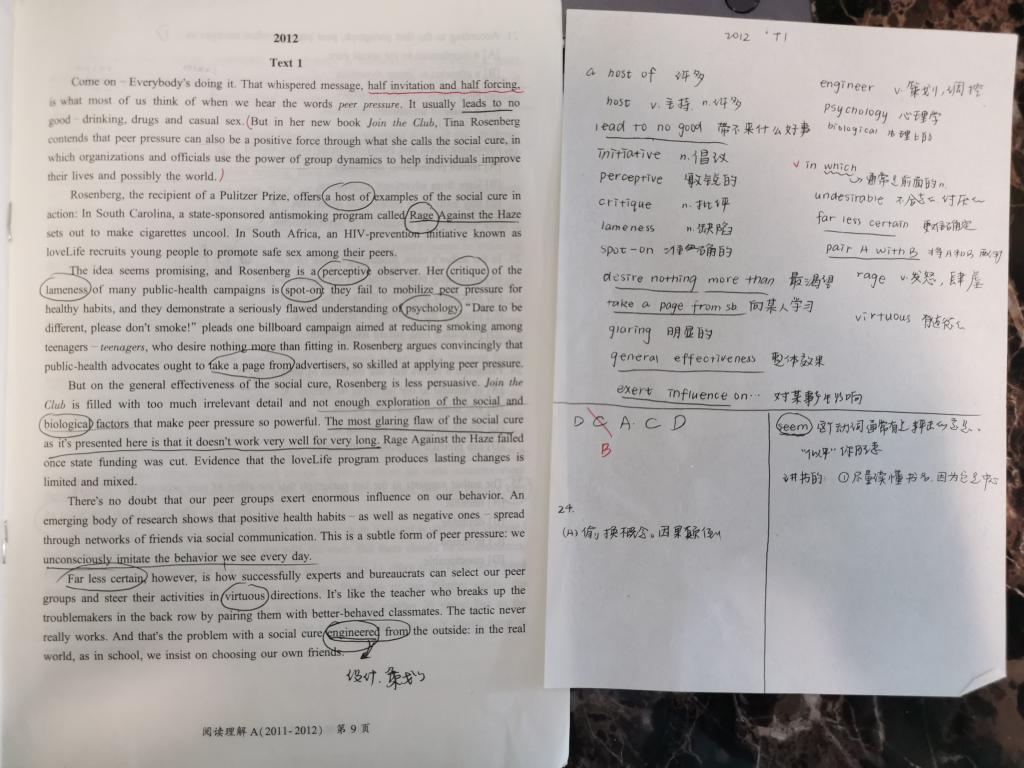 2012
Text 1
Come on – Everybody's doing it. That whispered message, half invitation and half forcing,
is what most of us think of when we hear the words peer pressure. It usually leads to no
good – drinking, drugs and casual sex. (But in her new book Join the Club, Tina Rosenberg
contends that peer pressure can also be a positive force through what she calls the social cure, in
which organizations and officials use the power of group dynamics to help individuals improve
their lives and possibly the world.)
Rosenberg, the recipient of a Pulitzer Prize, offers a host of examples of the social cure in
action: In South Carolina, a state-sponsored antismoking program called Rage Against the Haze
sets out to make cigarettes uncool. In South Africa, an HIV-prevention initiative known as
loveLife recruits young people to promote safe sex among their peers.
The idea seems promising, and Rosenberg is a perceptive observer. Her critique of the
lameness of many public-health campaigns is spot-on: they fail to mobilize peer pressure for
healthy habits, and they demonstrate a seriously flawed understanding of psychology. "Dare to be
different, please don't smoke!" pleads one billboard campaign aimed at reducing smoking among
teenagers – teenagers, who desire nothing more than fitting in. Rosenberg argues convincingly that
public-health advocates ought to take a page from advertisers, so skilled at applying peer pressure.
But on the general effectiveness of the social cure, Rosenberg is less persuasive. Join the
Club is filled with too much irrelevant detail and not enough exploration of the social and
biological factors that make peer pressure so powerful. The most glaring flaw of the social cure
as it's presented here is that it doesn't work very well for very long. Rage Against the Haze failed
once state funding was cut. Evidence that the loveLife program produces lasting changes is
limited and mixed.
There's no doubt that our peer groups exert enormous influence on our behavior. An
emerging body of research shows that positive health habits – as well as negative ones – spread
through networks of friends via social communication. This is a subtle form of peer pressure: we
unconsciously imitate the behavior we see every day.
Far less certain, however, is how successfully experts and bureaucrats can select our peer
groups and steer their activities in virtuous directions. It's like the teacher who breaks up the
troublemakers in the back row by pairing them with better-behaved classmates. The tactic never
really works. And that's the problem with a social cure engineered from the outside: in the real
world, as in school, we insist on choosing our own friends.
设计.策划的
阅读理解 A(2011-2012) 第 9 页
2012 'T1
a host of 许多
host v.主持 n.许多
lead to no good 带不来什么好事
initiative n.倡议
perceptive 敏锐的
critique n.批评
lameness n.缺陷
spot-on 准确的
desire nothing more than 最渴望
take a page from sb. 向某人学习
glaring 明显的
general effectiveness 整体效果
exert influence on… 对某事产生影响
engineer v.策划,调控
psychology 心理学
biological 生理上的
√ in which
通常是前面的n.
undesirable
far less certain
pair A with B 将A和B配对
rage v.发怒,肆虐
virtuous
D C A. C D
B
24.
(A) 偷换概念。因果颠倒
seem 这动词通常有
"似乎"
讲书的 ①尽量读懂书名.因为它是中心